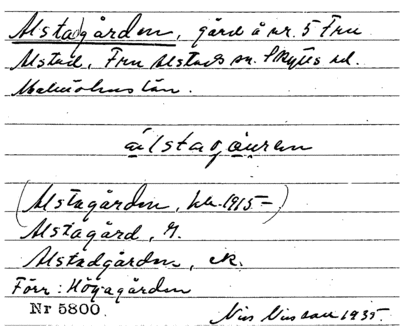 Alstadgården, gård å nr. 5 Fru
Alstad, Fru Alstads sn. Skytts hd.
Malmöhus län.
álstagá̤uren
(Alstagården, kk. 1915-)
Alstagård, G.
Alstadgården, ek.
Förr: Höjagården
Nr 5800. Nils Nilsson 1935.